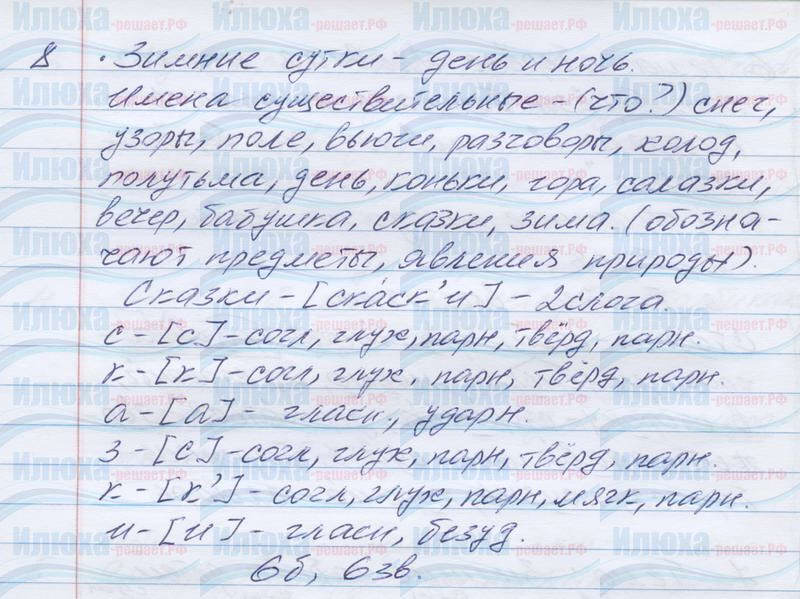 8 . Зимние сутки - день и ночь.
Имена существительные - (что?) снег,
узоры, поле, вьюги, разговоры, холод,
полутьма, день, коньки, гора, салазки,
вечер, бабушка, сказки, зима. (обозна-
чают предметы, явления природы).
Сказки - [ска́ск'и] - 2 слога.
с - [с] - согл, глух, парн, твёрд, парн.
к - [к] - согл, глух, парн, твёрд, парн.
а - [а] - гласн, ударн.
з - [с] - согл, глух, парн, твёрд, парн.
к - [к'] - согл, глух, парн, мягк, парн.
и - [и] - гласн, безуд.
6б, 6зв.
Илюха-решает.РФ